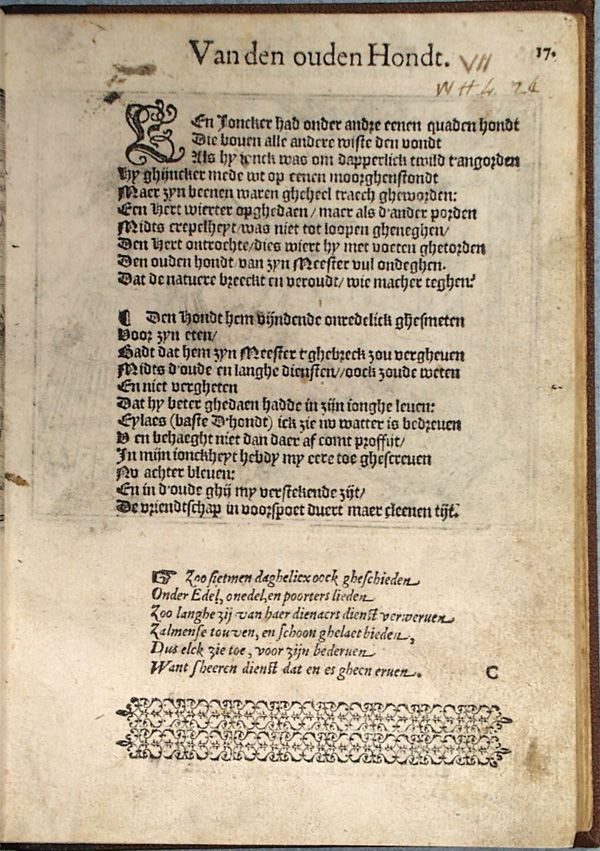 Van den ouden Hondt.
17.
VII
WH 4 26
EEn Joncker had onder andre eenen quaden hondt
Die bouen alle andere wiste den vondt
Als hy ionck was om dapperlick twild t'angorden
Hy ghijncker mede wt op eenen moorghenstondt
Maer zyn beenen waren gheheel traech gheworden:
Een Hert wierter opghedaen/ maer als d'ander porden
Midts crepelheyt/ was niet tot loopen gheneghen/
Den Hert ontrochte/ dies wiert hy met voeten ghetorden
Den ouden hondt/ van zyn Meester vul ondeghen.
Dat de natuere breeckt en veroudt/ wie macher teghen?
¶ Den Hondt hem vijndende onredelick ghesmeten
Voor zyn eten/
Badt dat hem zyn Meester t'ghebreck zou vergheuen
Midts d'oude en langhe diensten//oock zoude weten
En niet vergheten
Dat hy beter ghedaen hadde in zijn ionghe leuen:
Eylaes (baste D'hondt) ick zie nv watter is bedreuen
V en behaeght niet dan daer af comt proffijt/
In mijn ionckheyt hebdy my eere toe ghescreuen
Nv achter bleuen:
En in d'oude ghij my verstekende zijt/
De vriendtschap in voorspoet duert maer cleenen tijt.
☞ Zoo sietmen daghelicx oock gheschieden
Onder Edel, onedel, en poorters lieden
Zoo langhe zij van haer dienaers dienst verweruen
Zalmense touven, en schoon ghelaet bieden,
Dus elck zie toe, voor zijn bederuen
Want sheeren dienst dat en es gheen eruen.
C